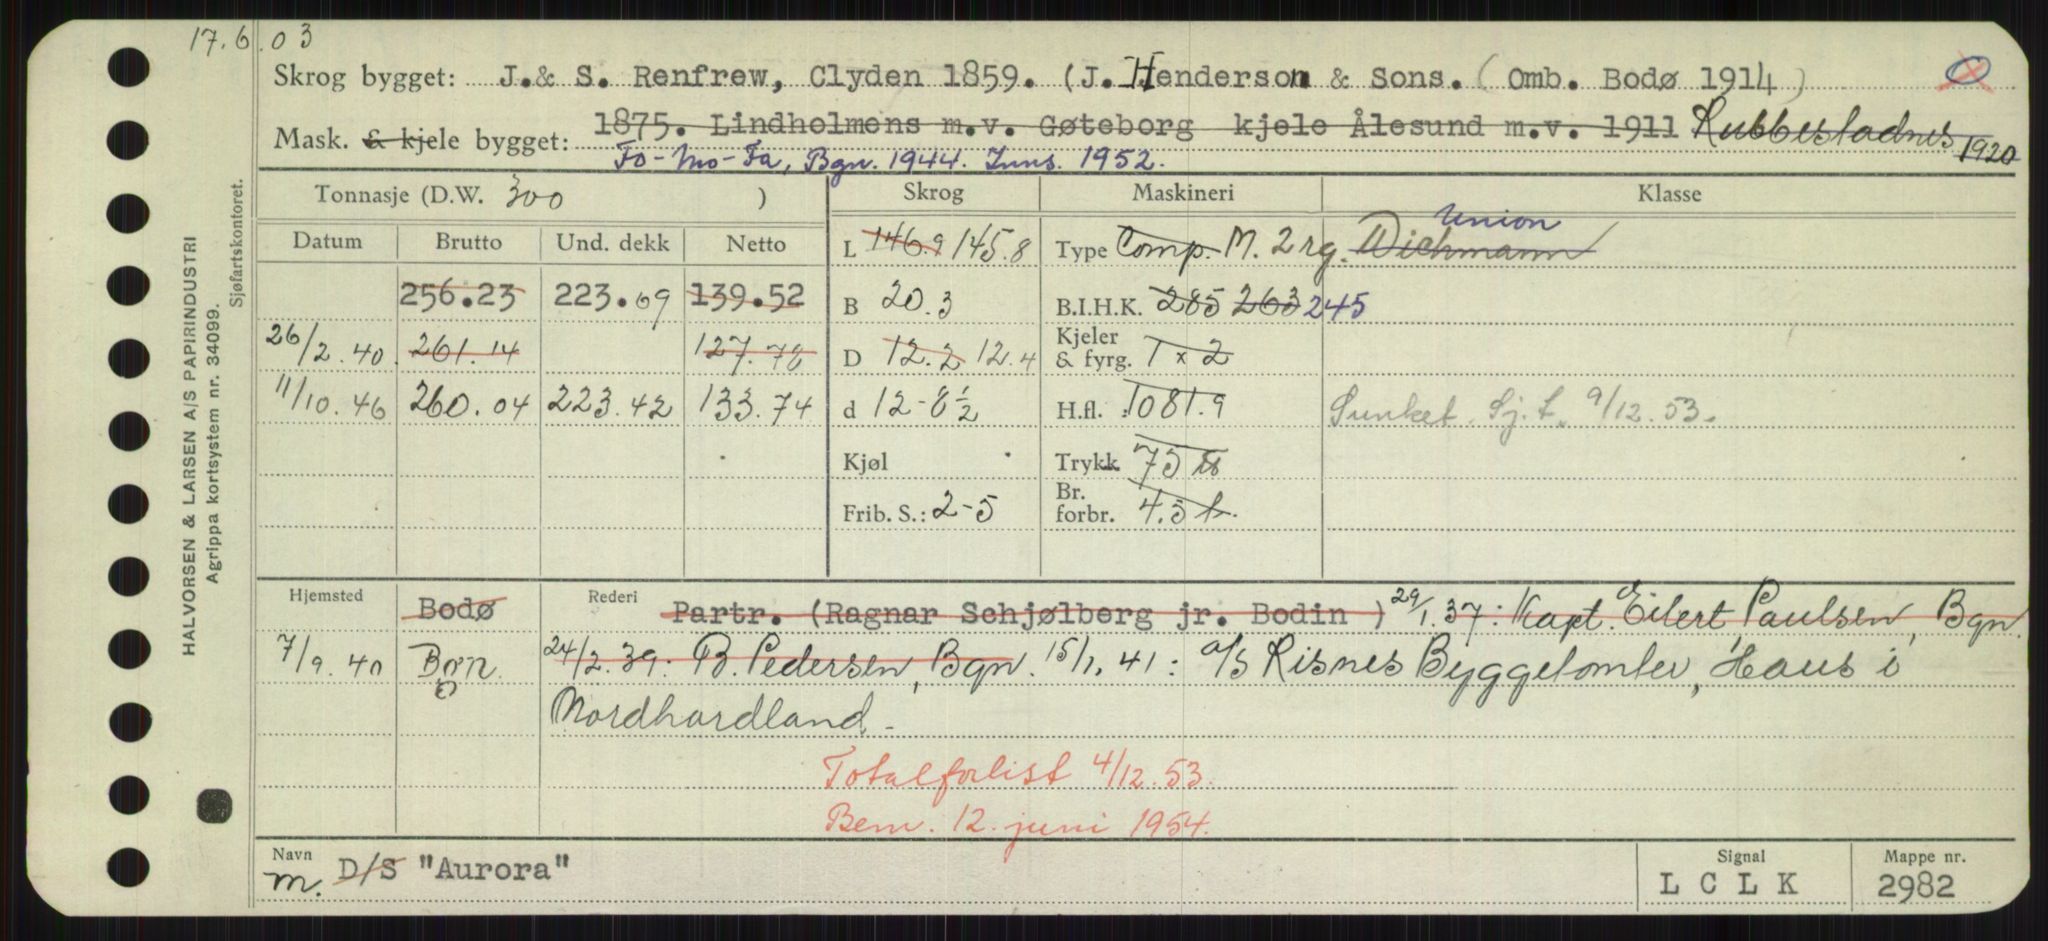 17.6.03
Skrog bygget: J.& S. Renfrew, Clyden 1859. (J. Henderson & Sons. (Omb. Bodø 1914)
1875. Lindholmens m.v. Gøteborg kjele Ålesund m.v. 1911 Rubbestadnes 1920
Mask. & kjele bygget:
Fo-Mo-Fa, Bgn. 1944. Inns. 1952.
Tonnasje (D.W. 300 ) Skrog Maskineri Klasse
Datum Brutto Und. dekk Netto L 146.9 145.8 Type Comp. M. 2 rg. Wichmann Union
256.23 223.69 139.52 B 20.3 B.I.H.K. 285 263 245
26/2.40. 261.14 127.78 D 12.2 12.4 Kjeler & fyrg. 1 x 2
11/10.46 260.04 223.42 133.74 d 12-8½ H.fl. : 1081.9 Sunket. Sj.f. 9/12.53.
Kjøl Trykk 75
Frib. S.: 2-5 Br. forbr. 4.5 t.
Hjemsted Bodø Rederi Partr. (Ragnar Schjølberg jr. Bodin ) 29/1.37: Kapt. Eilert Paulsen, Bgn.
7/9.40 Bgn. 24/2.39: B. Pedersen, Bgn. 15/1.41: a/s Risnes Byggetomter, Haus i
Nordhordland.
Totalforlist 4/12.53.
Bem. 12. juni 1954.
Navn Signal Mappe nr.
m. D/S "Aurora" L C L K 2982
HALVORSEN & LARSEN A/S PAPIRINDUSTRI
Agrippa kortsystem nr. 34099.
Sjøfartskontoret.